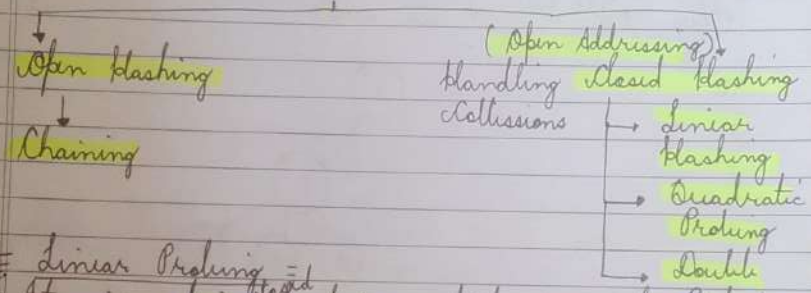 Open Hashing
Chaining
(Open Addressing)
Handling Closed Hashing
Collissions
Liniar
Hashing
Quadratic
Probing
Double
Liniar Probing